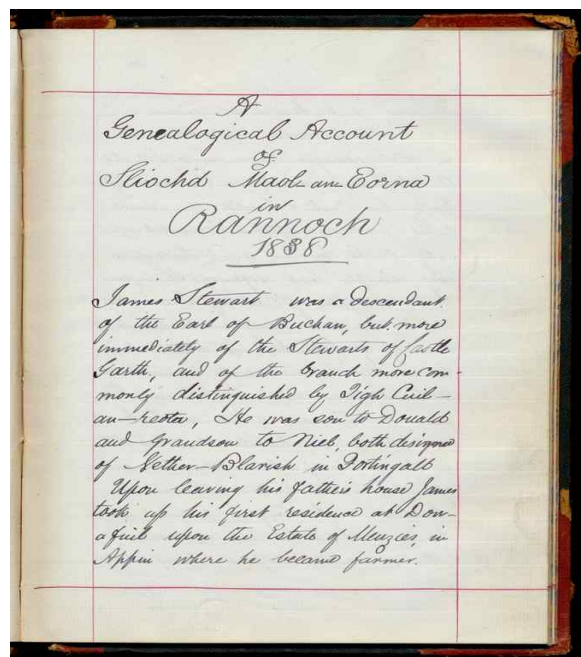 A
Genealogical Account
of
Sliochd Maol-an-Eorna
in
Rannoch
1838
James Stewart was a descendant
of the Earl of Buchan, but more
immediately of the Stewarts of Castle
Garth, and of the branch more com-
monly distinguished by Tigh Cuil-
an-reota, He was son to Donald
and Grandson to Niel, both designed
of Nether-Blarish in Fortingall
Upon leaving his father's house James
took up his first residence at Don-
afuil upon the Estate of Menzies, in
Appin where he became farmer.